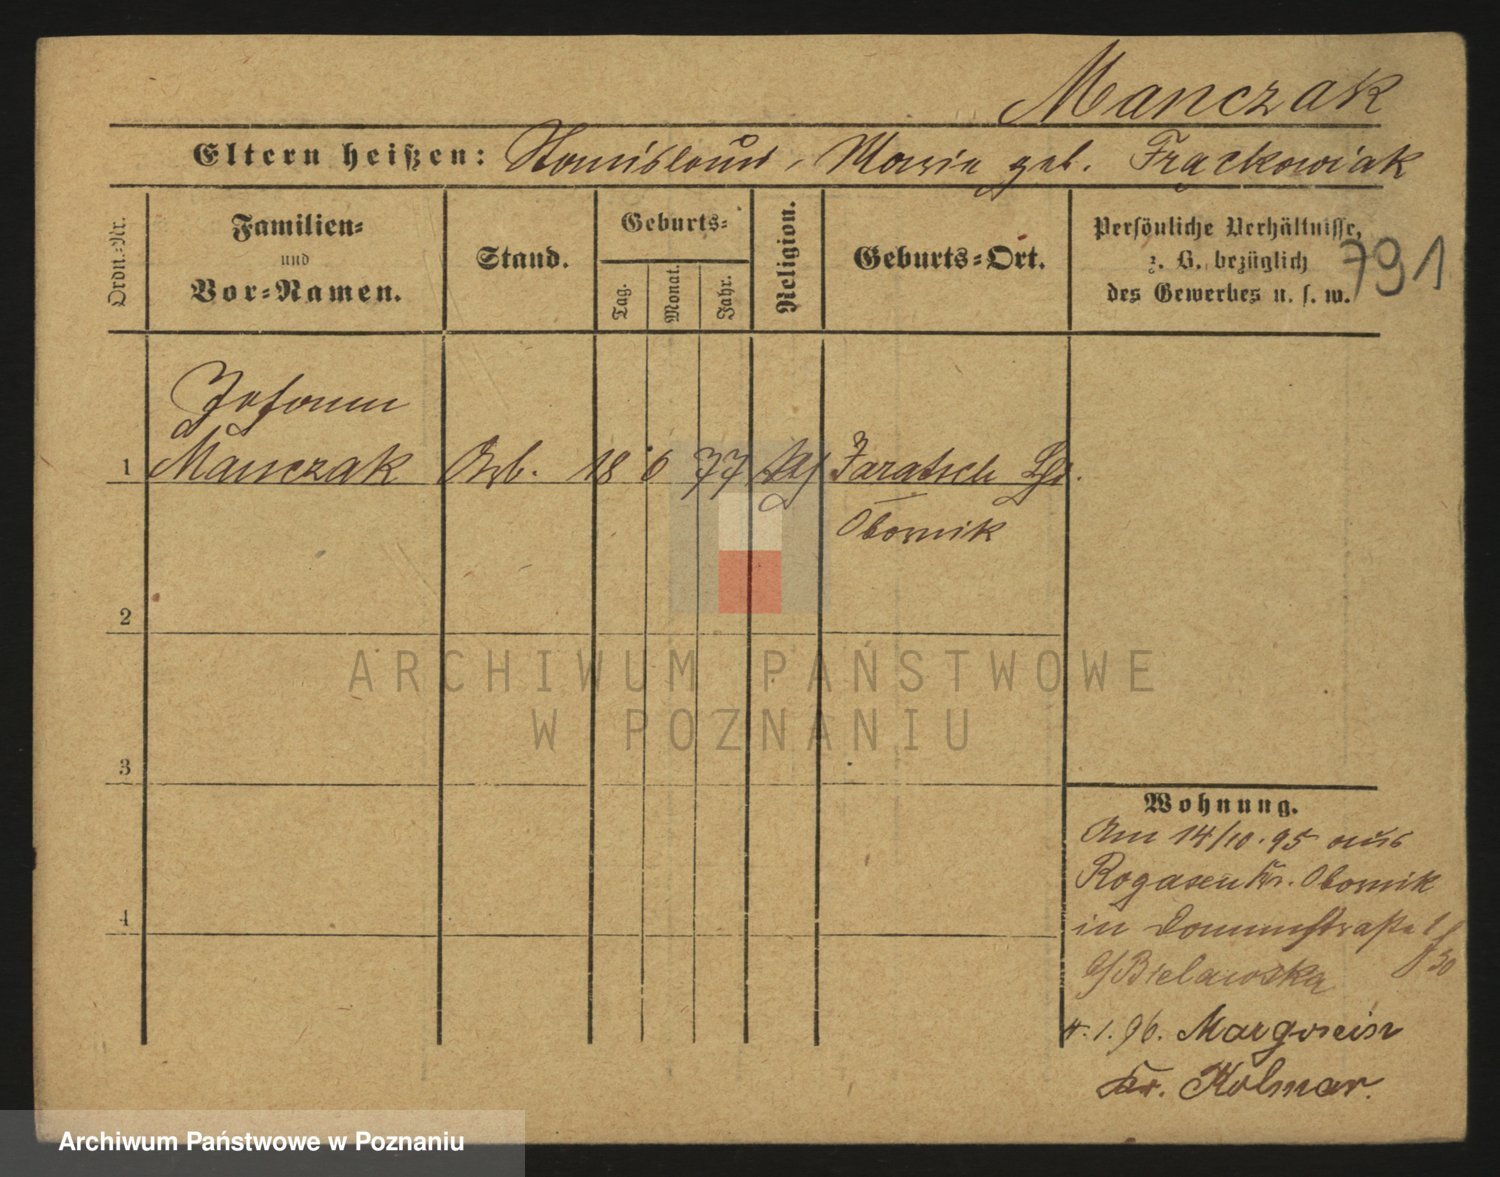 Manczak
Eltern heißen: Stanislaus, Marie geb. Frąckowiak
Ordn.-Nr.
Familien-
und
Vor-Namen.
Stand.
Geburts-
Tag.
Monat.
Jahr.
Religion.
Geburts-Ort.
Persönliche Verhältnisse,
z. B. bezüglich
des Gewerbes u. s. w.
791
Johann
1 Manczak Arb. 18 6 77 Jaratsch
Obornik
2
3
4
Wohnung.
Am 14/10.95 aus
Rogasen Kr. Obornik
in Dominstraße
b/ Bielawska
4.1.96. Margonin
Kr. Kolmar.
ARCHIWUM PAŃSTWOWE
W POZNANIU
Archiwum Państwowe w Poznaniu